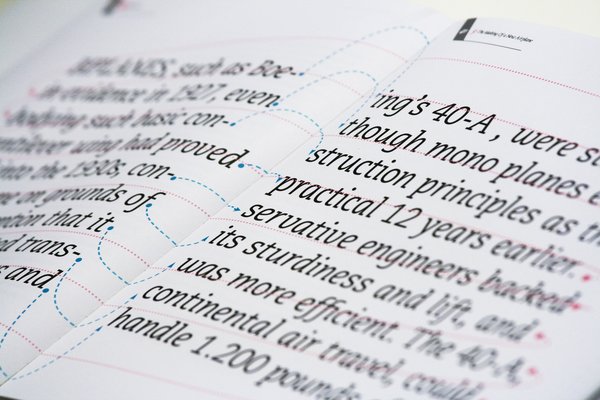 BIPLANES, such as Boe-
in evidence in 1927, even
bodying such basic con-
cantilever wing had proved
into the 1930s, con-
on grounds of
that it
trans-
and
The Making Of a New
ing's 40-A, were
though mono planes
struction principles as
practical 12 years earlier.
servative engineers backed
its sturdiness and lift, and
was more efficient. The 40-A,
continental air travel, could
handle 1.200 pounds